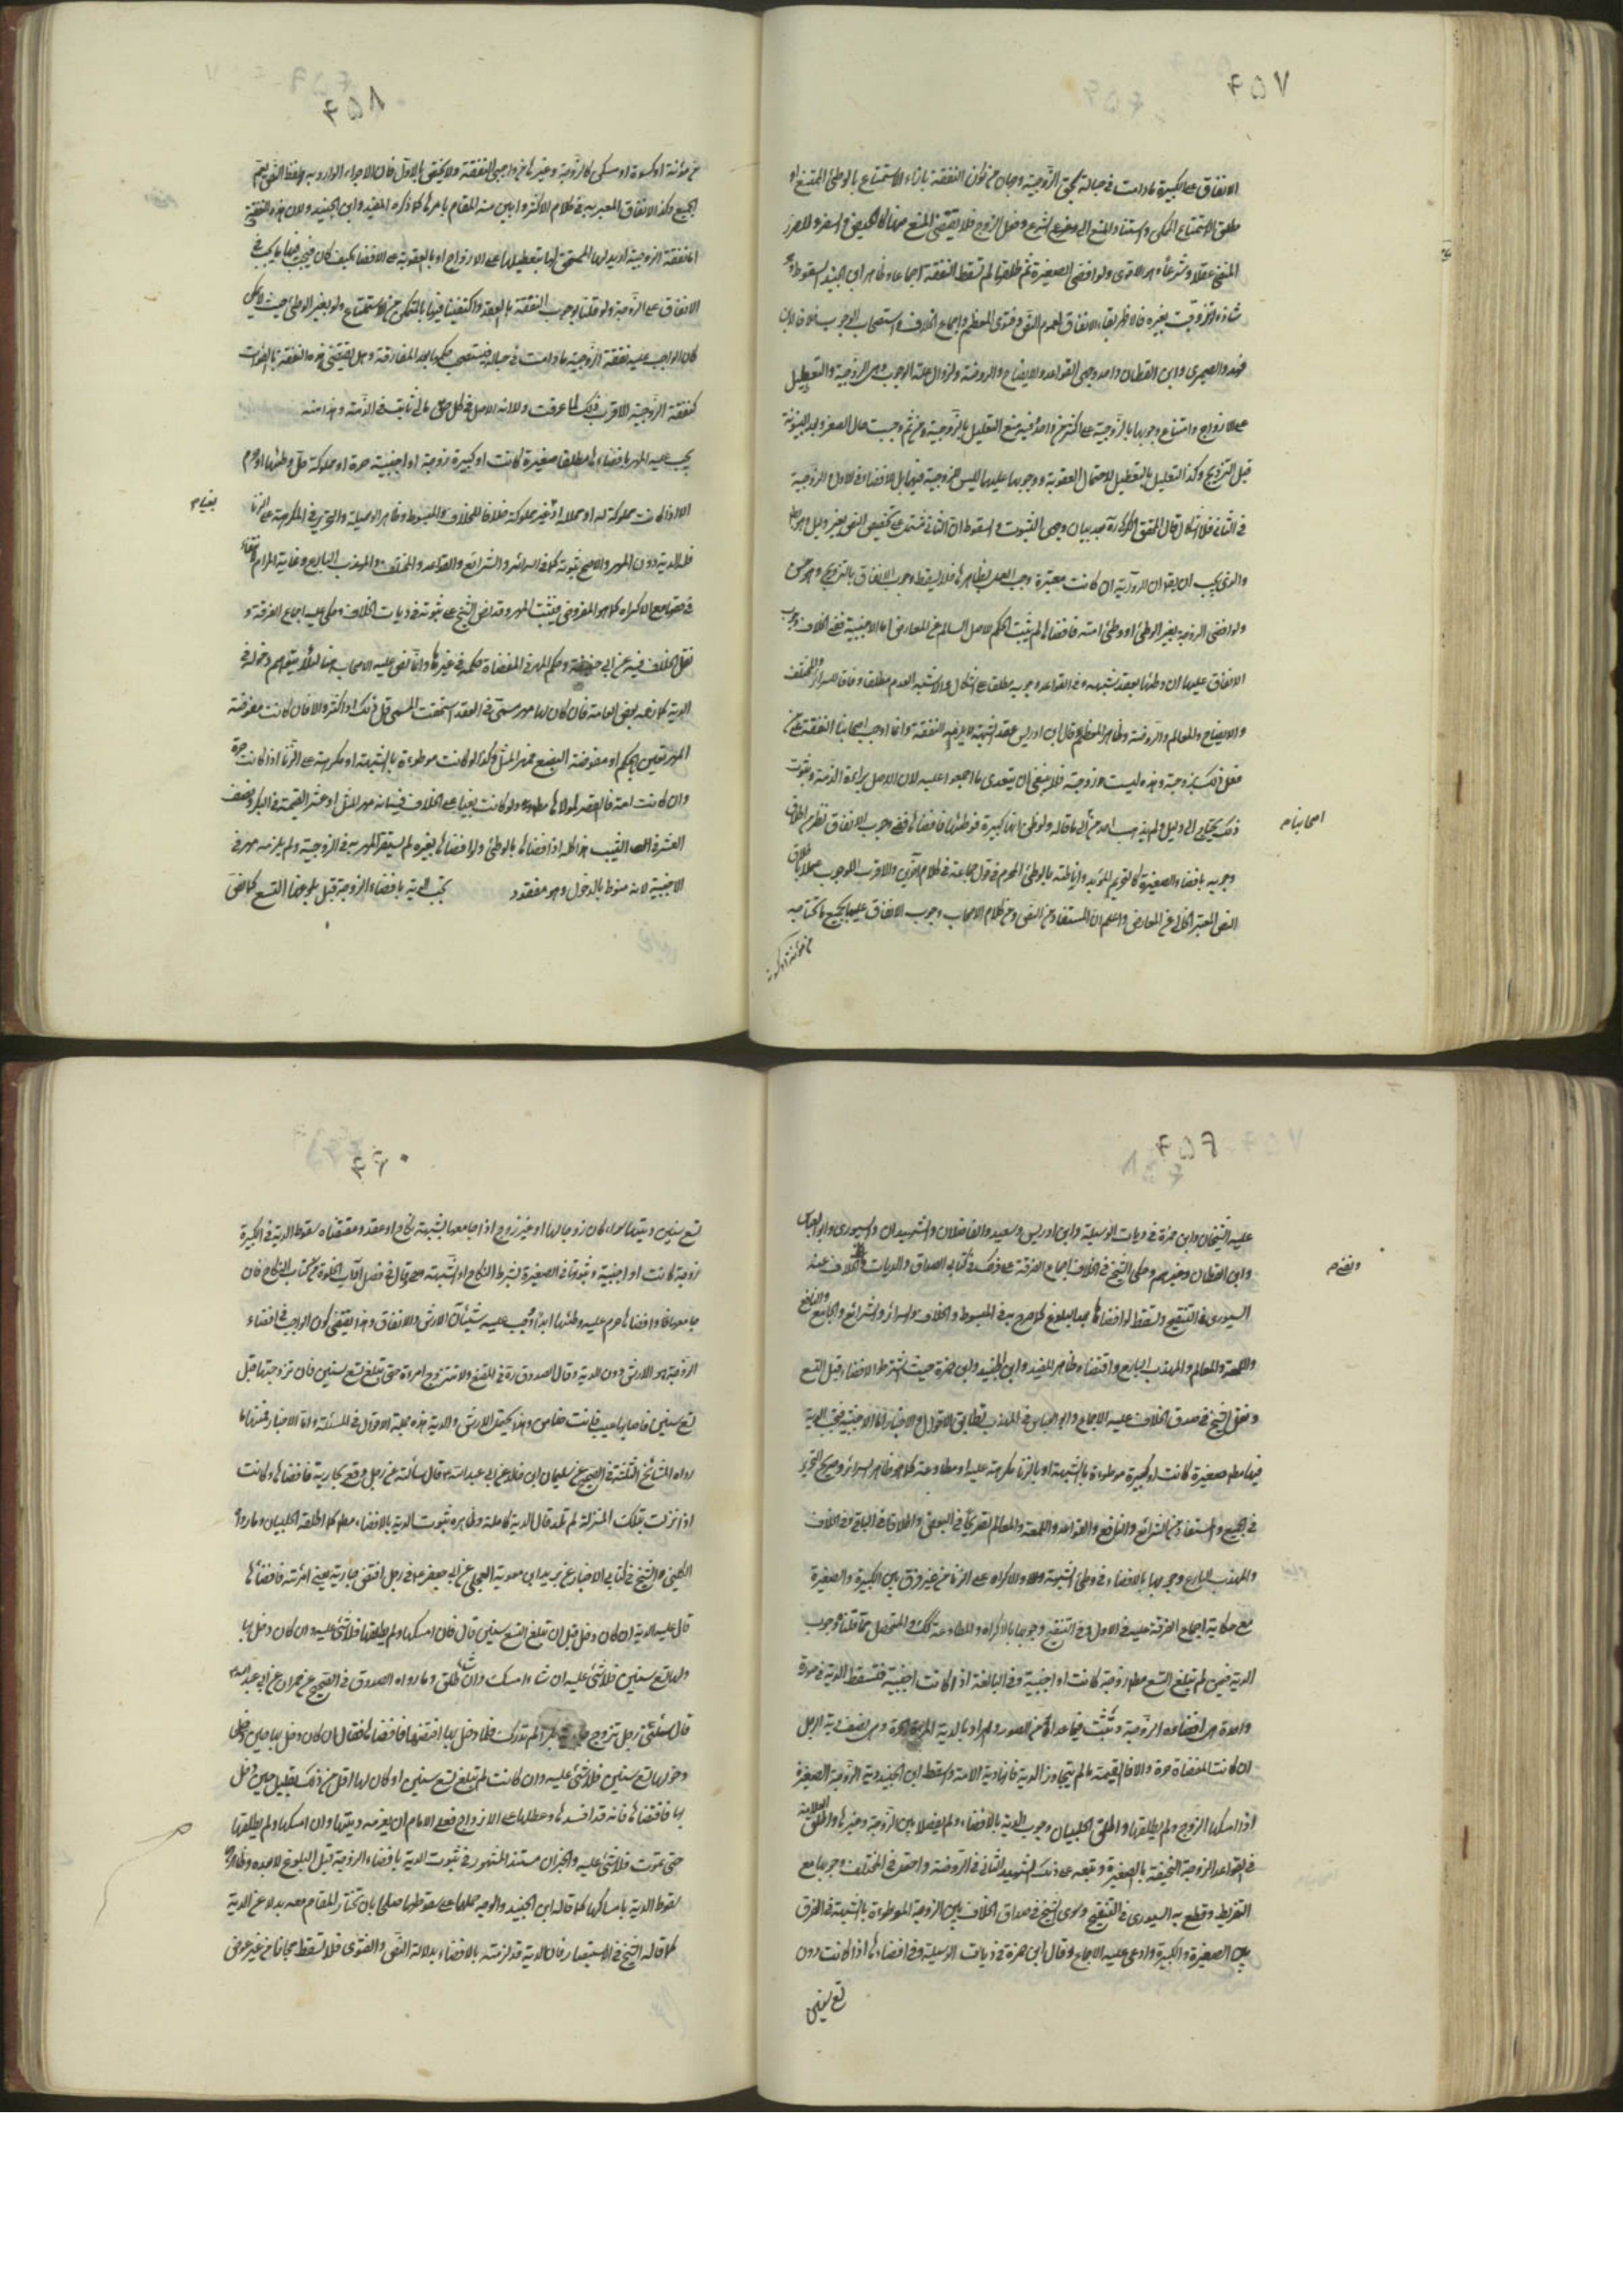 ٤٥٧
الانفاق على الكبيرة مادامت في حباله بحق الزوجية وجبان من كون النفقة بازاء الاستمتاع بالوطئ الممتنع او
مطلق الاستمتاع الممكن واستناد المنع الى وضع الشرع وفعل الزوج فلا يقتضي المنع منها كالحيض والسفر وللضرر
المنفي عقلا وشرعا وهو الاقوى ولو افضى الصغيرة ثم طلقها لم تسقط النفقة اجماعا وظاهر ابن الجنيد السقوط وهو
شاذ ولو تزوجت بغيره فالاظهر بقاء الانفاق لعموم النص وفتوى المعظم واجماع الخلاف واستصحاب الوجوب خلافا لابن
فهد والصيمري وابن القطان واحد وجهي القواعد والايضاح والروضة ولزوال علة الوجوب وهي الزوجية والتعطيل
على الازواج وامتناع وجوبها بالزوجية على اكثر من واحد وفيه منع التعليل بالزوجية ومن ثم وجبت حال الصغر وبعد البينونة
قبل التزويج وكذا التعليل بالتعطيل لاحتمال العقوبة ووجوبها عليهما ليس من جهة الزوجية فيهما بل للافضاء في الاول والزوجية
في الثاني فلا اشكال قال المحقق الكركي ره بعد بيان وجهي الثبوت والسقوط ان الثاني
والذي يجب ان يقال ان الرواية ان كانت معتبرة وجب العمل بظاهرها فلا يسقط وجوب الانفاق بالتزويج وهو حسن
ولو افضى الزوجة بغير الوطئ او وطئ امته فافضاها لم يثبت الحكم للاصل السالم عن المعارض اما الاجنبية ففي الخلاف وجوب
الانفاق عليها ان وطئها بعقد شبهة وفي القواعد وجوبه مطلقا على اشكال والاشبه العدم مطلقا وفاقا للسرائر والمختلف
والايضاح والمعالم والروضة وظاهر المعظم قال ابن ادريس عقد الشبهة لا يلزم فيه النفقة وانما اوجب اصحابنا النفقة على من
فعل ذلك بزوجته وهذه ليست زوجة فلا ينبغي ان يتعدى ما اجمعوا عليه لان الاصل براءة الذمة وثبوت
ذلك يحتاج الى دليل ولم يذهب احد من اصحابنا الى ما قاله ولو ظن انها كبيرة فوطئها فافضاها ففي وجوب الانفاق نظر من اطلاق
وجوبه بافضاء الصغيرة كالتحريم المؤبد واناطته بالوطئ المحرم في قول جماعة في كلام آخرين والاقرب الوجوب عملا باطلاق
النص المعتبر الخالي عن المعارض واعلم ان المستفاد من النص ومن كلام الاصحاب وجوب الانفاق عليها بجميع ما تحتاج اليه
من مؤنة او كسوة
اصحابنا م
٤٥٨
من مؤنة او كسوة او مسكن كالزوجة وغيرها من واجبي النفقة ولا يختص بالاول فان الاجراء الوارد به لفظ النص يعم
الجميع وكذا الانفاق المعبر به في كلام الاكثر وابين منه القيام بامرها كما ذكره المفيد وابن الجنيد ولان هذه النفقة
اما نفقة الزوجية اديد لها للمستحق لها بتعطيلها على الازواج او بالعقوبة على الافضاء كيف كان فيجب فيها ما يجب في
الانفاق على الزوجة ولو قلنا بوجوب النفقة بالعقد واكتفينا فيها بالتمكن من الاستمتاع ولو بغير الوطئ حيث لا يمكن
كان الواجب عليه نفقة الزوجية مادامت في حباله فيستصحب حكمها بعد المفارقة وهل يقتضي هذه النفقة بالفوات
كنفقة الزوجية الاقرب ذلك لما عرفت ولانه الاصل في كل حق مالي ثابت في الذمة وهذا منه
يجب عليه المهر بافضاءها مطلقا صغيرة كانت او كبيرة زوجة او اجنبية حرة او مملوكة حل وطئها او حرم
الا اذا كانت مملوكة له او محللة او غير مملوكة خلافا للخلاف والمبسوط وظاهر الوسيلة والتحرير في المكرهة على الزنا
فلها الدية دون المهر والاصح ثبوته كما في السرائر والشرائع والقواعد والمختلف والمهذب البارع وغاية المرام
في حقها مع الاكراه كما هو المفروض فيثبت المهر وقد نص الشيخ على ثبوته في ديات الخلاف وحكى عليه اجماع الفرقة و
نقل الخلاف فيه عن ابي حنيفة وحكم المهر في المفضاة حكمه في غيرها وانما نص عليه الاصحاب هنا لئلا يتوهم دخوله في
الدية كما زعمه بعض العامة فان كان لها مهر مسمى في العقد استحقت المسمى قل ذلك او اكثر والا فان كانت مفوضة
المهر تعين بالحكم او مفوضة البضع فمهر المثل وكذا لو كانت موطوءة بالشبهة او مكرهة على الزنا اذا كانت حرة
وان كانت امة فالعقر لمولاها مطلقا ولو كانت بغيا على الخلاف في ضمان مهر المثل او عشر القيمة في البكر ونصف
العشر في الثيب هذا كله اذا افضاها بالوطئ ولو افضاها بغيره لم يستقر المهر به في الزوجية ولم يلزمه مهر في
الاجنبية لانه منوط بالدخول وهو مفقود تجب الدية بافضاء الزوجة قبل بلوغها التسع كما نص
٤٥٩
عليه الشيخان وابن حمزة في ديات الوسيلة وابن ادريس وسعيد والفاضلان والشهيدان والسيوري وابو العباس
وابن القطان وغيرهم وحكى الشيخ في الخلاف اجماع الفرقة على ذلك في كتابي الصداق والديات والخلاف عند
السيوري في التنقيح وتسقط لو افضاها بعد البلوغ كما صرح به في المبسوط والخلاف والسرائر والشرائع والجامع والنافع
واللمعة والمعالم والمهذب البارع واقتضاه ظاهر المفيد وابن الجنيد وابن حمزة حيث اشترطوا الافضاء قبل التسع
ونقل الشيخ في صداق الخلاف عليه الاجماع وابو العباس في المهذب تطابق الاقوال والاخبار اما الاجنبية فيجب الدية
فيها مطلقا صغيرة كانت او كبيرة موطوءة بالشبهة او بالزنا مكرهة عليه او مطاوعة كما هو ظاهر السرائر وصريح التحرير
في الجميع والمستفاد من الشرائع والنافع والقواعد واللمعة والمعالم تصريحا في البعض واطلاقا في الباقي وفي الخلاف
والمهذب البارع وجوبها بالافضاء في وطئ الشبهة والاكراه على الزنا من غير فرق بين الكبيرة والصغيرة
مع حكاية اجماع الفرقة عليه في الاول وفي التنقيح وجوبها بالاكراه والمطاوعة كذلك والمتحصل مما قلنا وجوب
الدية فيمن لم تبلغ التسع مطلقا زوجة كانت او اجنبية وفي البالغة اذا كانت اجنبية فتسقط الدية في صورة
واحدة هي افضاء الزوجة وتثبت فيما عداها من الصور والمراد بالدية دية المرأة الحرة وهي نصف دية الرجل
ان كانت المفضاة حرة والا فالقيمة ما لم يتجاوز الدية فانها دية الامة واسقط ابن الجنيد دية الزوجة الصغيرة
اذا امسكها الزوج ولم يطلقها واطلق الحلبيان وجوب الدية بالافضاء ولم يفصلا بين الزوجة وغيرها واطلق العلامة
في القواعد الزوجة النحيفة بالصغيرة وتبعه على ذلك الشهيد الثاني في الروضة واحتمل في المختلف وجوبها مع
التفريط وقطع به السيوري في التنقيح وسوى الشيخ في صداق الخلاف بين الزوجة الموطوءة بالشبهة في الفرق
بين الصغيرة والكبيرة وادعى عليه الاجماع وقال ابن حمزة في ديات الوسيلة وفي افضاءها اذا كانت دون
تسع سنين
٤٦٠
تسع سنين ديتها سواء كان زوجا لها او غير زوج اذا جامعها لشبهة نكاح او عقد ومقتضاه سقوط الدية في الكبيرة
زوجة كانت او اجنبية وثبوتها في الصغيرة بشرط النكاح او الشبهة وقال في فصل آداب الخلوة من كتاب النكاح فان
جامعها وافضاها حرم عليه وطئها ابدا ووجب عليه شيئان الارش والانفاق وهذا يقتضي كون الواجب في افضاء
الزوجة هو الارش دون الدية وقال الصدوق ره في المقنع ولا تتزوج امرأة حتى تبلغ تسع سنين فان تزوجتها قبل
تسع سنين فاصابها عيب فانت ضامن وهذا يحتمل الارش والدية هذه جملة الاقوال في المسئلة واما الاخبار فمنها ما
رواه المشائخ الثلثة في الصحيح عن سليمان ابن خالد عن ابي عبد الله ع قال سألته عن رجل وقع بجارية فافضاها وكانت
اذا نزلت بتلك المنزلة لم تلد قال الدية كاملة وظاهره ثبوت الدية بالافضاء مطلقا كما اطلقه الحلبيان وما رواه
الكليني والشيخ في كتابي الاخبار عن بريد ابن معوية العجلي عن ابي جعفر ع في رجل افتض جارية يعني امرأته فافضاها
قال عليه الدية ان كان دخل قبل ان تبلغ التسع سنين قال فان امسكها ولم يطلقها فلا شئ عليه وان كان دخل بها
ولها تسع سنين فلا شئ عليه ان شاء امسك وان شاء طلق وما رواه الصدوق في الصحيح عن حمران عن ابي عبد الله ع
قال سئل عن رجل تزوج جارية بكرا لم تدرك فلما دخل بها افتضها فافضاها فقال ان كان دخل بها حين دخل
ولها تسع سنين فلا شئ عليه وان كانت لم تبلغ تسع سنين او كان لها اقل من ذلك بقليل حين دخل
بها فافتضها فانه قد افسدها وعطلها على الازواج فعلى الامام ان يغرمه ديتها وان امسكها ولم يطلقها
حتى تموت فلا شئ عليه والخبران مستند المشهور في ثبوت الدية بافضاء الزوجة قبل البلوغ لا بعده وظاهرهما
سقوط الدية بامساكها كما قاله ابن الجنيد والوجه حملهما على سقوطها صلحا بان تختار المقام معه بدلا عن الدية
كما قاله الشيخ في الاستبصار فان الدية قد لزمته بالافضاء بدلالة النص والفتوى فلا تسقط مجانا من غير عوض